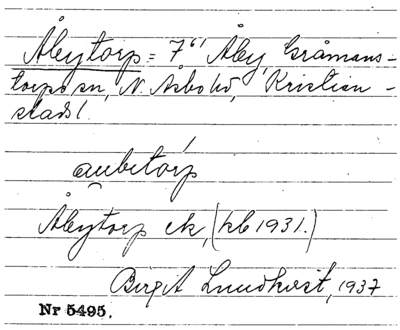 Åbytorp = 7⁶¹ Åby, Gråmans-
torps sn, N. Åsbo hd, Kristian-
stads l.
au̯betórp
Åbytorp ek, (kb 1931.)
Birgit Lundkvist, 1937
Nr 5495.